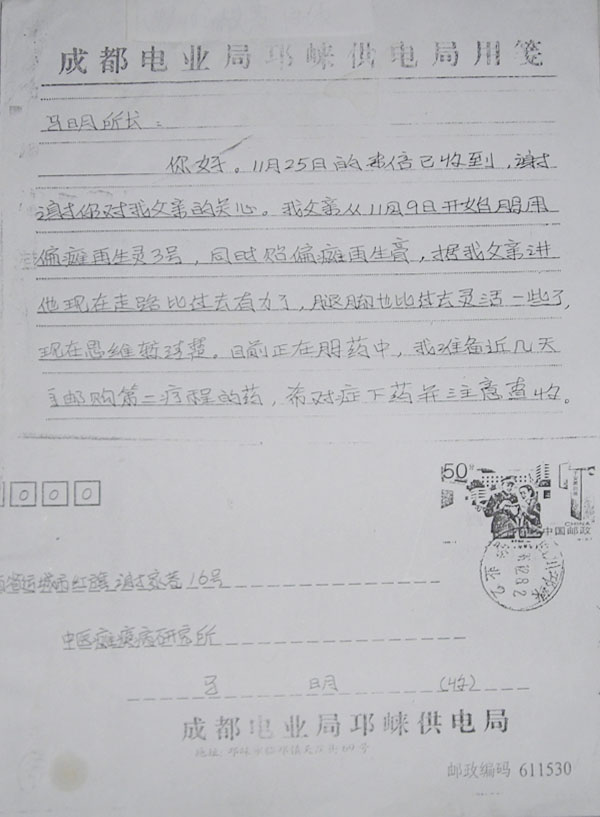 成都电业局邛崃供电局用笺
马明所长：
你好。11月25日的来信已收到，谢谢
谢你对我父亲的关心。我父亲从11月9日开始服用
偏瘫再生灵3号，同时贴偏瘫再生膏，据我父亲讲
他现在走路比过去有力了，腿脚也比过去灵活一些了，
现在思维暂清楚。目前正在服药中，我准备近几天
邮购第二疗程的药，希对症下药并注意查收。
0 0 0
50分
CHINA
中国邮政
省运城市红旗 16号
中医瘫痪病研究所
马 明 (收)
成都电业局邛崃供电局
地址：邛崃市临邛镇
邮政编码 611530